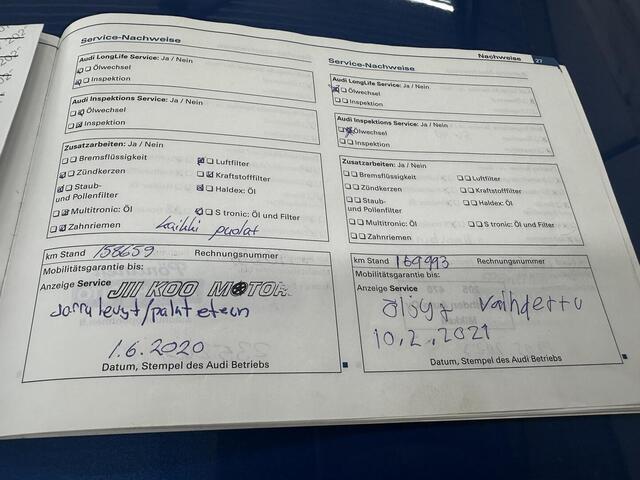 Service-Nachweise
Audi LongLife Service: Ja / Nein
Ölwechsel
Inspektion
Audi Inspektions Service: Ja / Nein
Ölwechsel
Inspektion
Zusatzarbeiten: Ja / Nein
Bremsflüssigkeit
Luftfilter
Zündkerzen
Kraftstofffilter
Staub-
und Pollenfilter
Haldex: Öl
Multitronic: Öl
S tronic: Öl und Filter
Zahnriemen
kaikki puolat
km Stand 158659 Rechnungsnummer
Mobilitätsgarantie bis:
Anzeige Service
JII KOO MOTOR
Jarrulevyt/palat eteen
1.6.2020
Datum, Stempel des Audi Betriebs
Nachweise 27
Service-Nachweise
Audi LongLife Service: Ja / Nein
Ölwechsel
Inspektion
Audi Inspektions Service: Ja / Nein
Ölwechsel
Inspektion
Zusatzarbeiten: Ja / Nein
Bremsflüssigkeit
Luftfilter
Zündkerzen
Kraftstofffilter
Staub-
und Pollenfilter
Haldex: Öl
Multitronic: Öl
S tronic: Öl und Filter
Zahnriemen
km Stand 169993 Rechnungsnummer
Mobilitätsgarantie bis:
Anzeige Service
öljyt vaihdettu
10.2.2021
Datum, Stempel des Audi Betriebs